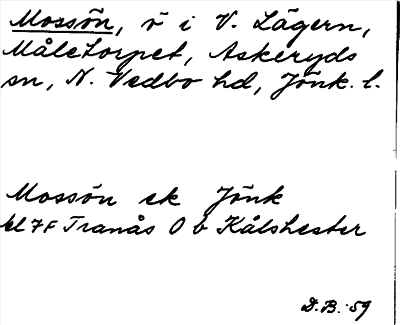 Mossön, ö i V. Lägern,
Måletorpet, Askeryds
sn, N. Vedbo hd, Jönk. l.
Mossön ek Jönk
bl 7F Tranås 0 b Kålshester
D.B. 59